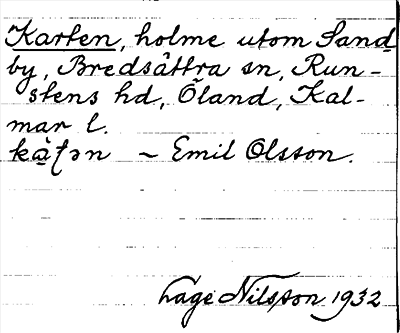 Karten, holme utom Sand
by, Bredsättra sn, Run-
stens hd, Öland, Kal-
mar l.
kàʈən ~ Emil Olsson.
Låge Nilsson 1932